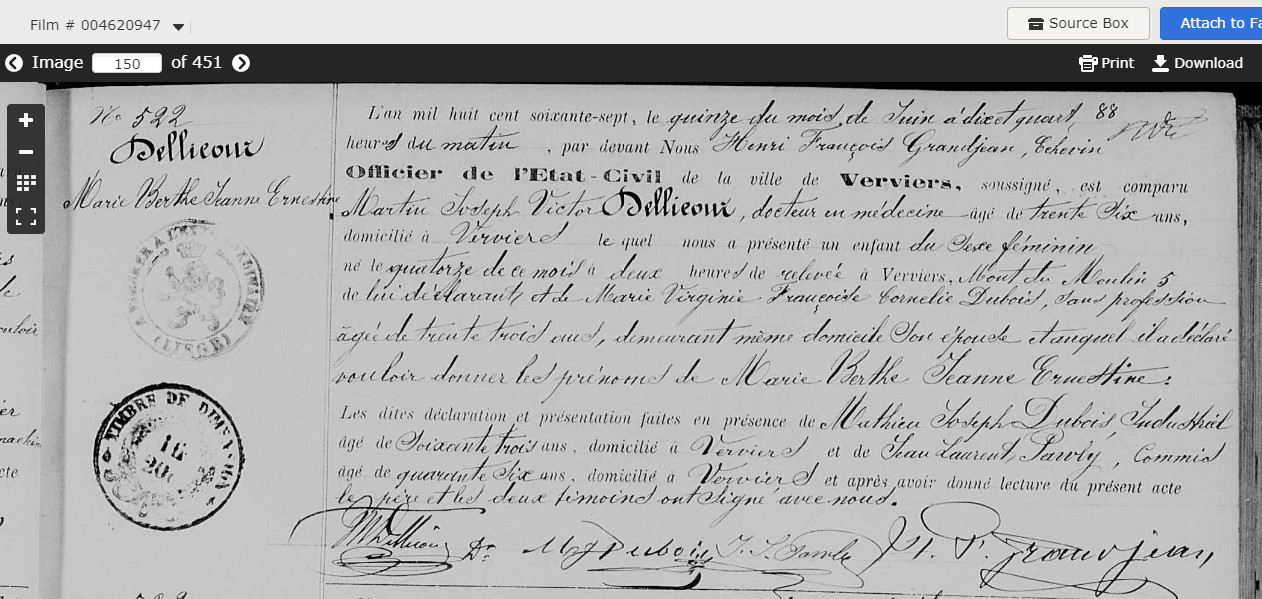 Film # 004620947
Source Box
Attach to Fa
Image 150 of 451
Print
Download
No 522
Dellicour
Marie Berthe Jeanne Ernestine
(LIEGE)
TIMBRE DE DIMENSION
L'an mil huit cent soixante-sept, le quinze du mois de Juin à dix et quart 88
heures du matin, par devant Nous Henri François Grandjean, Echevin
Officier de l'Etat-Civil de la ville de Verviers, soussigné, est comparu
Martin Joseph Victor Dellicour, docteur en médecine âgé de trente six ans,
domicilié à Verviers le quel nous a présenté un enfant du sexe féminin
né le quatorze de ce mois à deux heures de relevée à Verviers, Mont du Moulin 5
de lui déclarant et de Marie Virginie Françoise Cornelie Dubois, sans profession
âgée de trente trois ans, demeurant même domicile son épouse et auquel il a déclaré
vouloir donner les prénoms de Marie Berthe Jeanne Ernestine:
Les dites déclaration et présentation faites en présence de Mathieu Joseph Dubois, Industriel
âgé de soixante trois ans, domicilié à Verviers et de Jean Laurent, Commis
âgé de quarante six ans, domicilié à Verviers et après avoir donné lecture du présent acte
le père et les deux témoins ont signé avec nous.
Dr MJ Dubois H. F. Grandjean